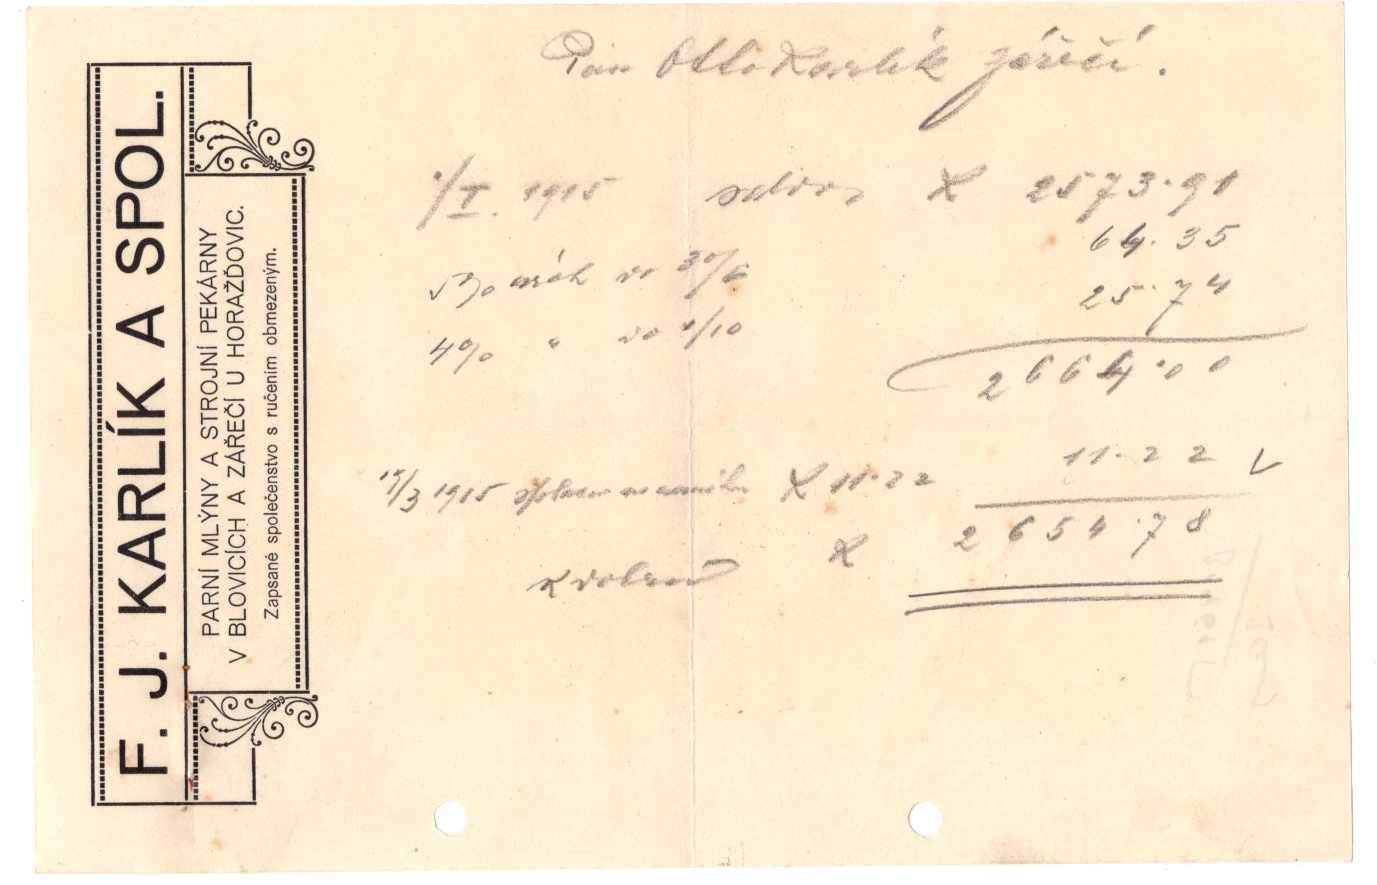 F. J. KARLÍK A SPOL.
PARNÍ MLÝNY A STROJNÍ PEKÁRNY
V BLOVICÍCH A ZÁŘEČÍ U HORAŽĎOVIC.
Zapsané společenstvo s ručením obmezeným.
Pan Otto Karlík Zářečí.
1/I. 1915 K 2573.91
64.35
5% úrok do 30/6 25.74
4% " do 1/10
2664.00
11.22
15/3 1915 K 11.22
K 2654.78